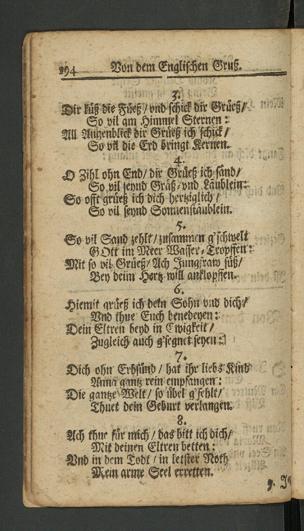 294 Von dem Englischen Gruß.
3.
Dir küß die Füeß / vnd schick dir Grüeß /
So vil am Himmel Sternen:
All Augenblick dir Grüeß ich schick /
So vil die Erd bringt Kernen.
4.
O Zihl ohn End / dir Grüeß ich sänd /
So vil seynd Gräß / vnd Läublein:
So offt grüeß ich dich hertziglich /
So vil seynd Sonnenstäublein.
5.
So vil Sand zehlt / zusammen g'schwelt
GOtt im Meer Wasser-Tropffen:
Mit so vil Grüeß / Ach Jungfraw süß /
Bey deim Hertz will anklopffen.
6.
Hiemit grüeß ich dein Sohn vnd dich /
Vnd thue Euch benedeyen:
Dein Eltren beyd in Ewigkeit /
Zugleich auch g'segnet seyen:
7.
Dich ohn Erbsünd / hat ihr liebs Kind
Anna gantz rein empfangen:
Die gantze Welt / so übel g'fehlt /
Thuet dein Geburt verlangen.
8.
Ach thue für mich / das bitt ich dich /
Mit deinen Eltren betten:
Vnd in dem Todt / in letster Noth
Mein arme Seel erretten.
9.